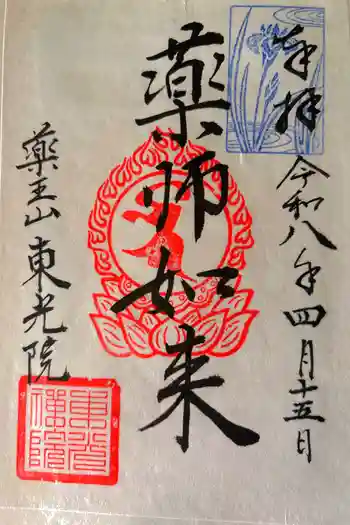 奉拝
令和八年四月十五日
薬師如来
薬王山東光院